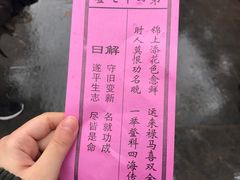 锦上添花色愈鲜
运来禄马喜双全
时人莫恨功名晚
一举登科四海传
解曰
守旧变新
名就功成
遂平生志
尽皆是命